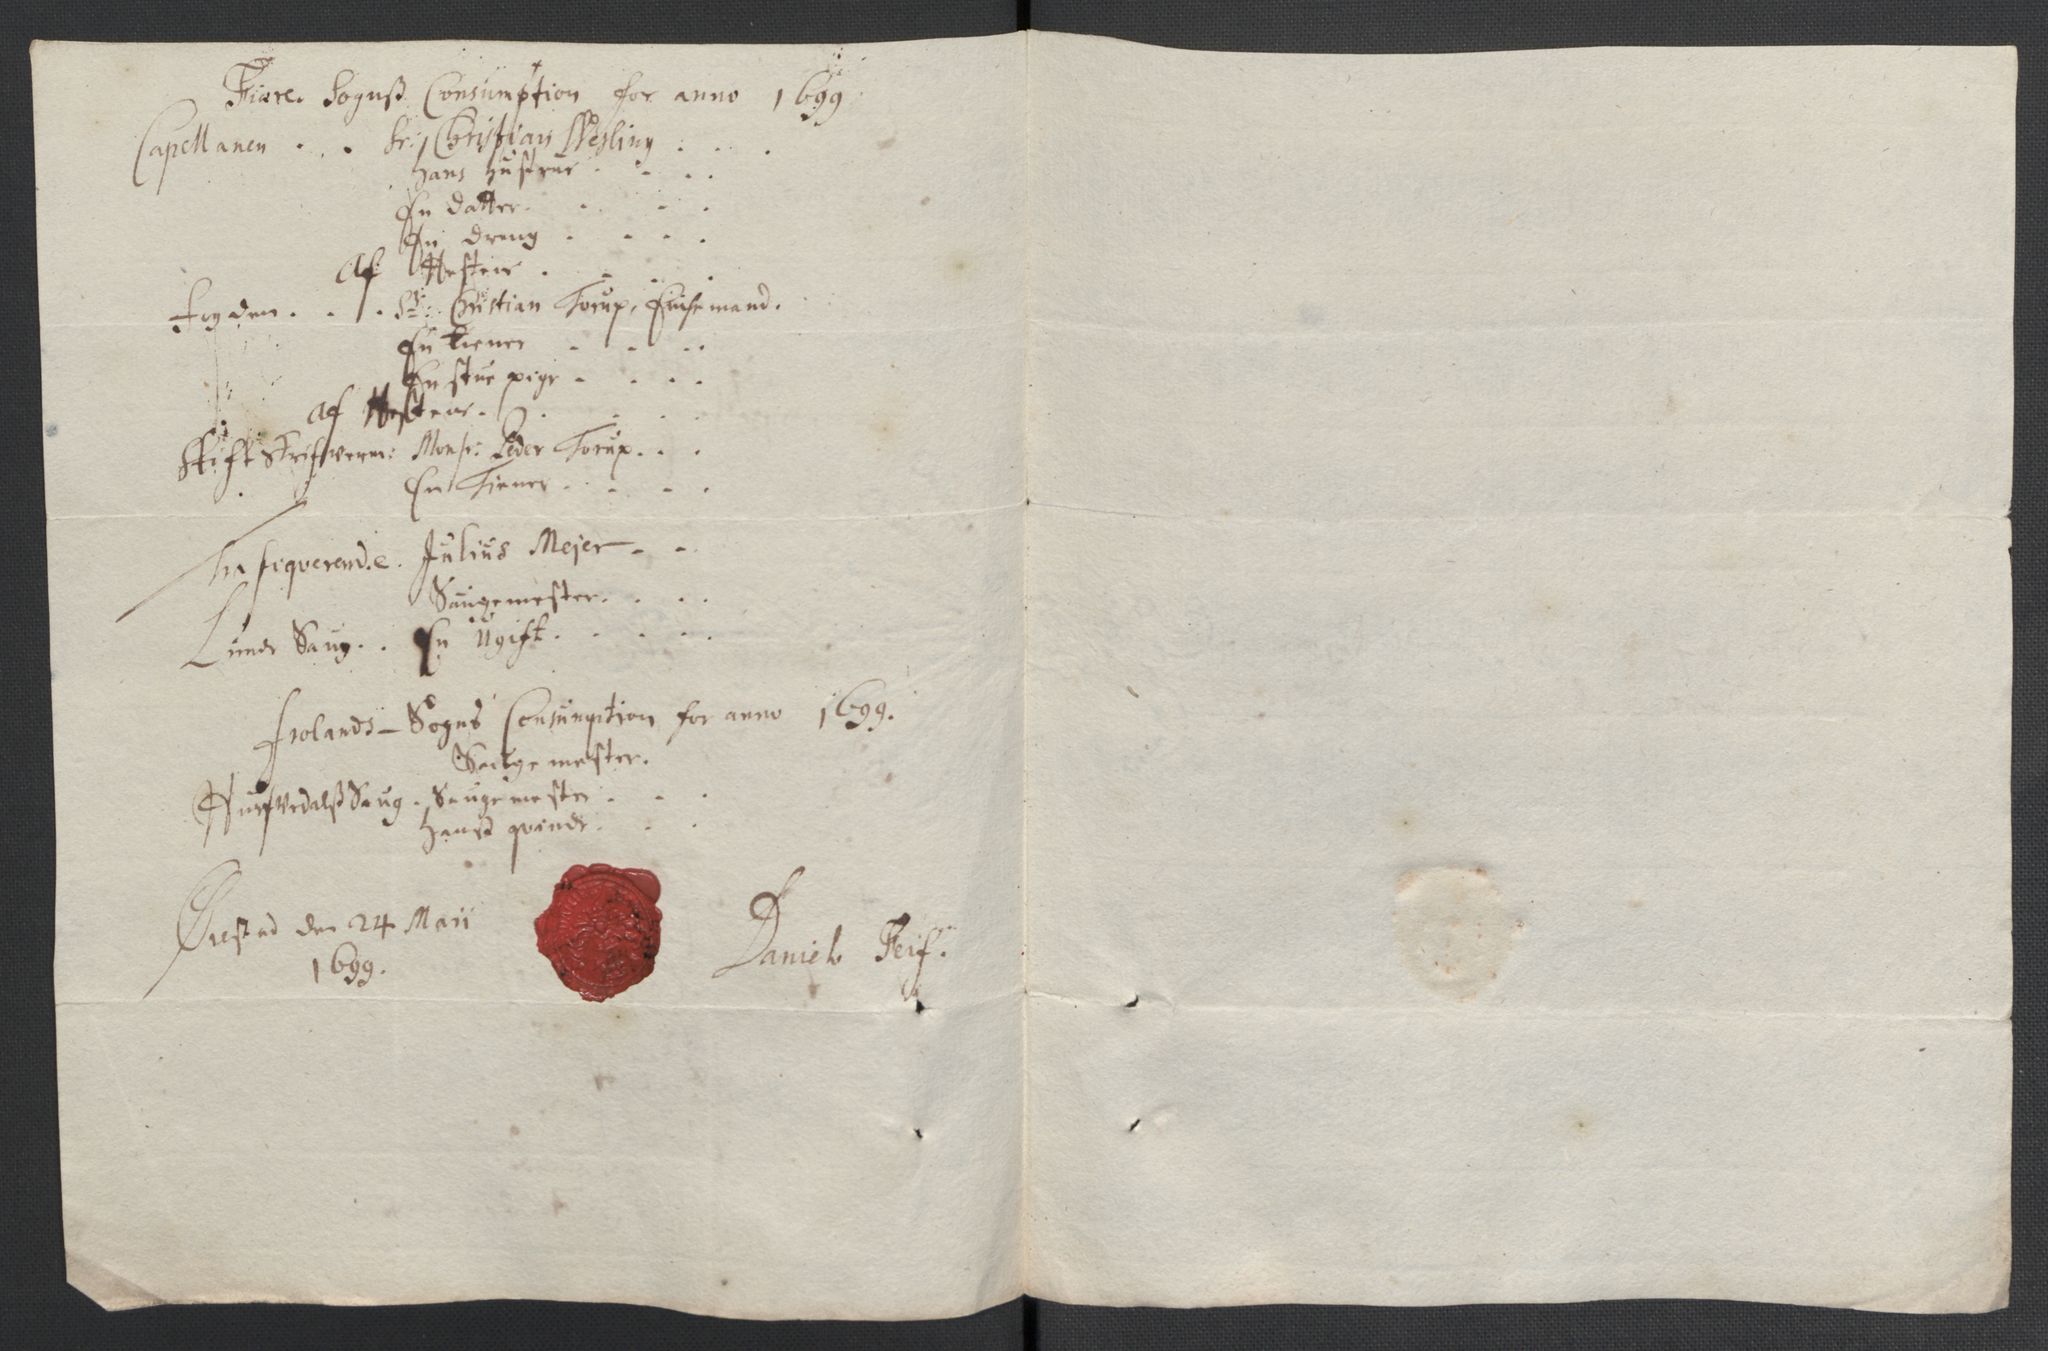 Fiære Sognß Consumption for anno 1699
Capellanen . . Hr: Christian Wesling . . .
hans hustrue . . . .
En datter . . . .
En dreng . . . .
Af Hesten . . . .
Fogden . . . Sr: Christian Torup, Enchemand.
En tiener . . . .
En stue pige . . . .
Af Hesten . . . . .
Skifft Skrifveren: Monsr: Peder Torup . . .
En Tiener . . . .
Trafiqverende. Julius Mejer . .
Saugemester . . . .
Lunde Saug . . En Ugift . . . .
Frolands Sogns Consumption for anno 1699.
Saugemester.
Saug . Saugemester . . .
Hans qvinde . . .
Øiestad den 24 Maii
1699.
Daniel